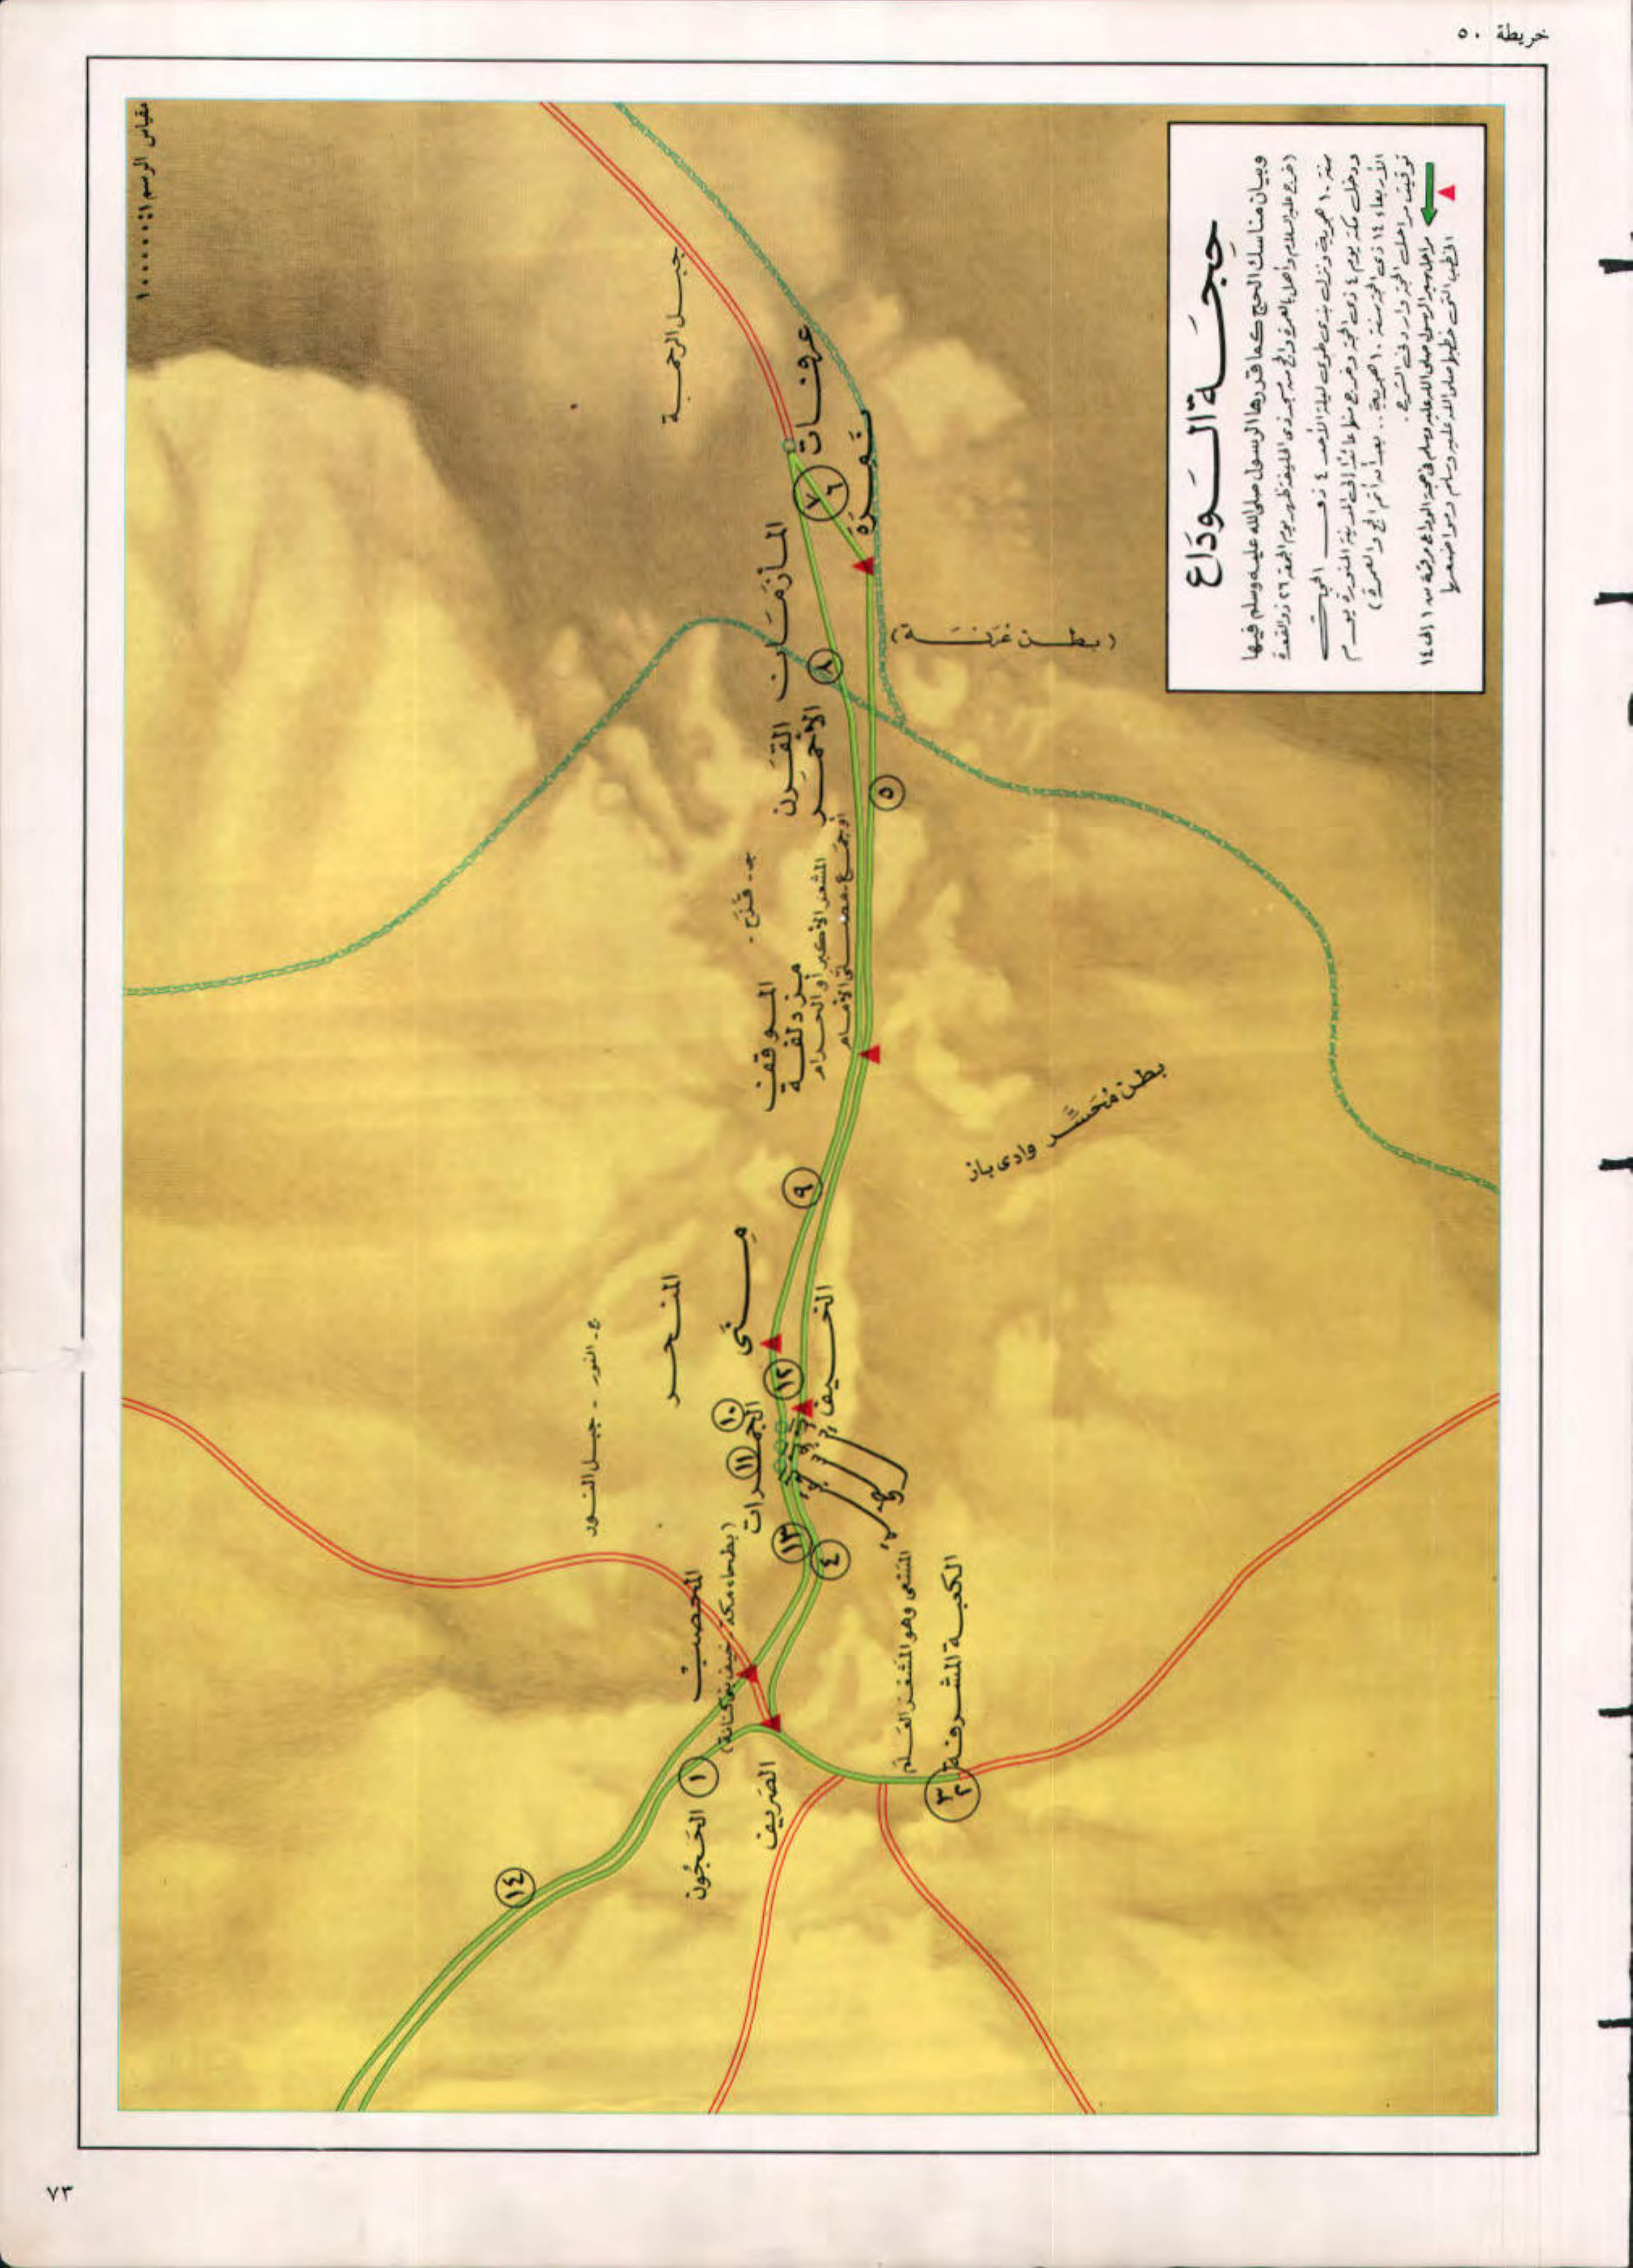 خريطة ٥٠
حِجَّة الوَدَاع
وبيان مناسك الحج كما قررها الرسول صلى الله عليه وسلم فيها
(خرج عليه السلام وأهل بالعمرة والحج من مسجد ذى الحليفة ظهر يوم الجمعة ٢٦ ذو القعدة
سنة ١٠ هجرية ونزل بذى طوى ليلة الأحد ٤ ذى الحجة
ودخل مكة يوم ٤ ذى الحجة وخرج منها عائدًا إلى المدينة المنورة يوم
الأربعاء ١٤ ذى الحجة سنة ١٠ هجرية .. بعد أن أتم الحج والعمرة)
توقيت مراحل الحج وارد فى الشرح .
مراحل سير الرسول صلى الله عليه وسلم فى حجة الوداع مرقمة من ١ إلى ١٤
الخطب التى خطبها صلى الله عليه وسلم ومواضعها
مقياس الرسم ١:١٠٠٠٠٠
جبل الرحمة
عرفات
نَمِرَة
٧
٦
المأزمَان
(بطن عُرَنَة)
٨
القَرن
الأحمر
٥
ج - قُزَح -
الموقف
مزدلفة
المشعر الأكبر أو الحرام
أو جَمع - مصلى الأمام
بطن مُحَسَّر وادى باز
٩
مِنَى
المنحر
الخيف
ج - النور - جبل النور
١٢
١٠
١١
الجمرات
١٣
٤
المحصب
(بطحاء مكة - خيف بنى كنانة)
الكعبة المشرفة
٣
٢
١
الحَجُون
الصريف
١٤
٧٣